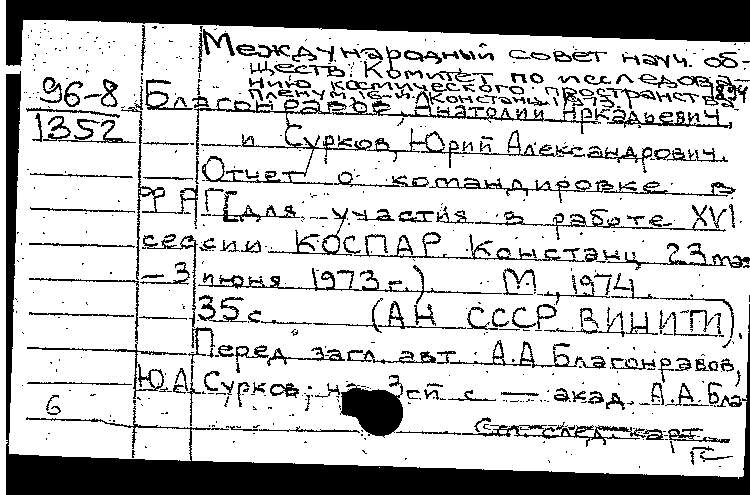 Международный совет науч. об-
ществ. Комитет по исследова-
нию космического пространства.
Констанц. 1973.
96-8 Благонравов, Анатолий Аркадьевич, 1894
1352 и Сурков, Юрий Александрович.
Отчет о командировке в
ФРГ [для участия в работе XVI
сессии КОСПАР. Констанц 23 мая
– 3 июня 1973 г.) М., 1974.
35 с. (АН СССР ВИНИТИ).
Перед загл. авт.: А.А Благонравов,
Ю.А. Сурков; на 3ей с — акад. А.А Бла
6
См. след. карт.